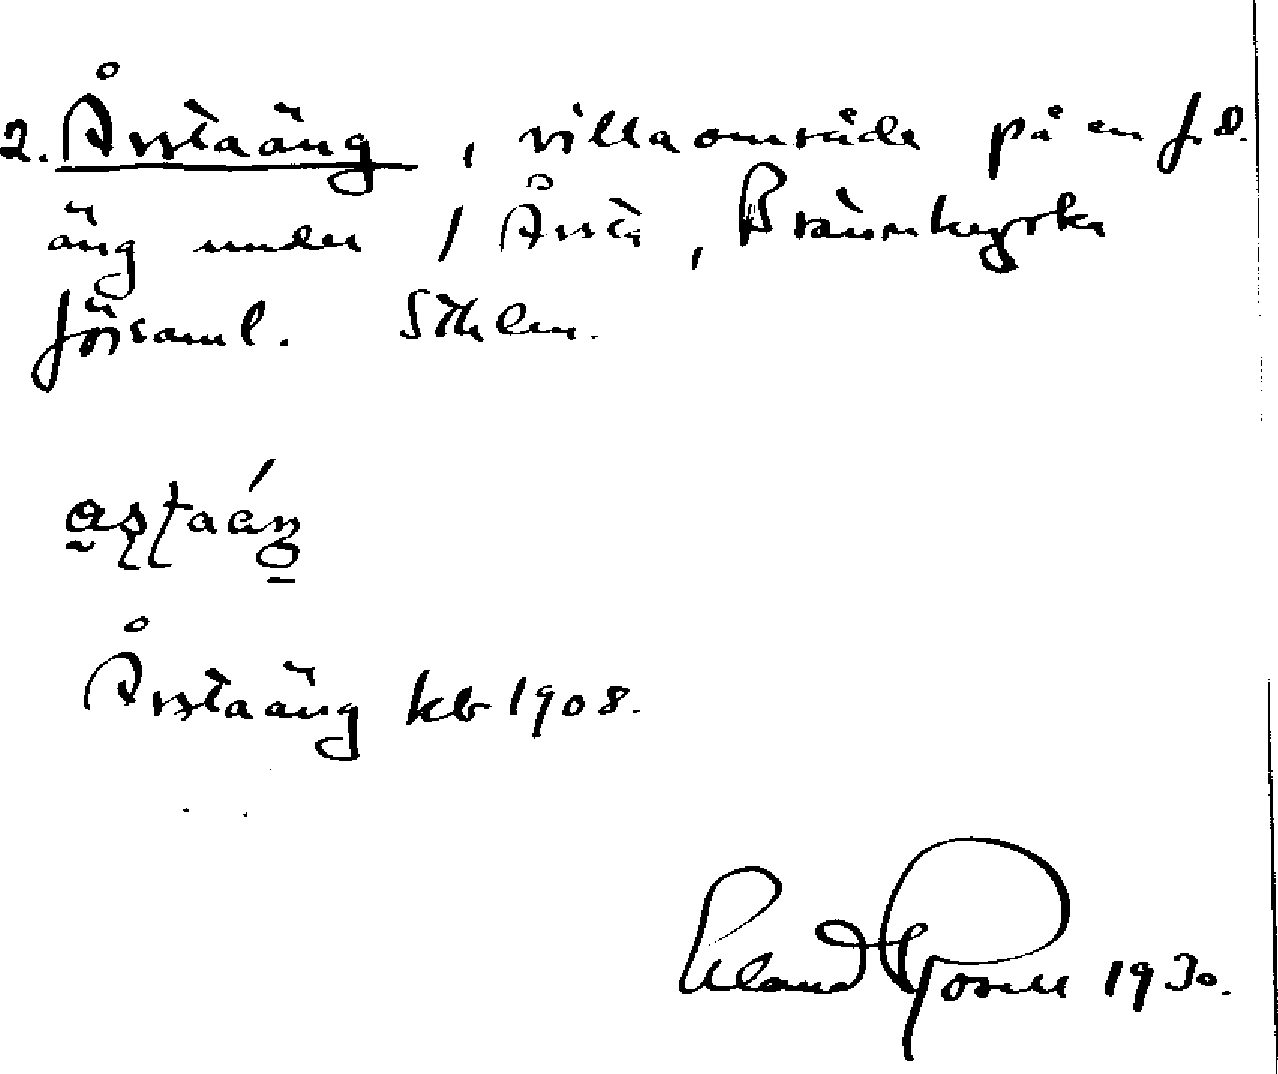 2. Årstaäng, villaområde på en f.d.
äng under / Årsta, Brännkyrka
församl. Sthlm.
Årstaäng kb 1908.
Erland Rosell 1930.